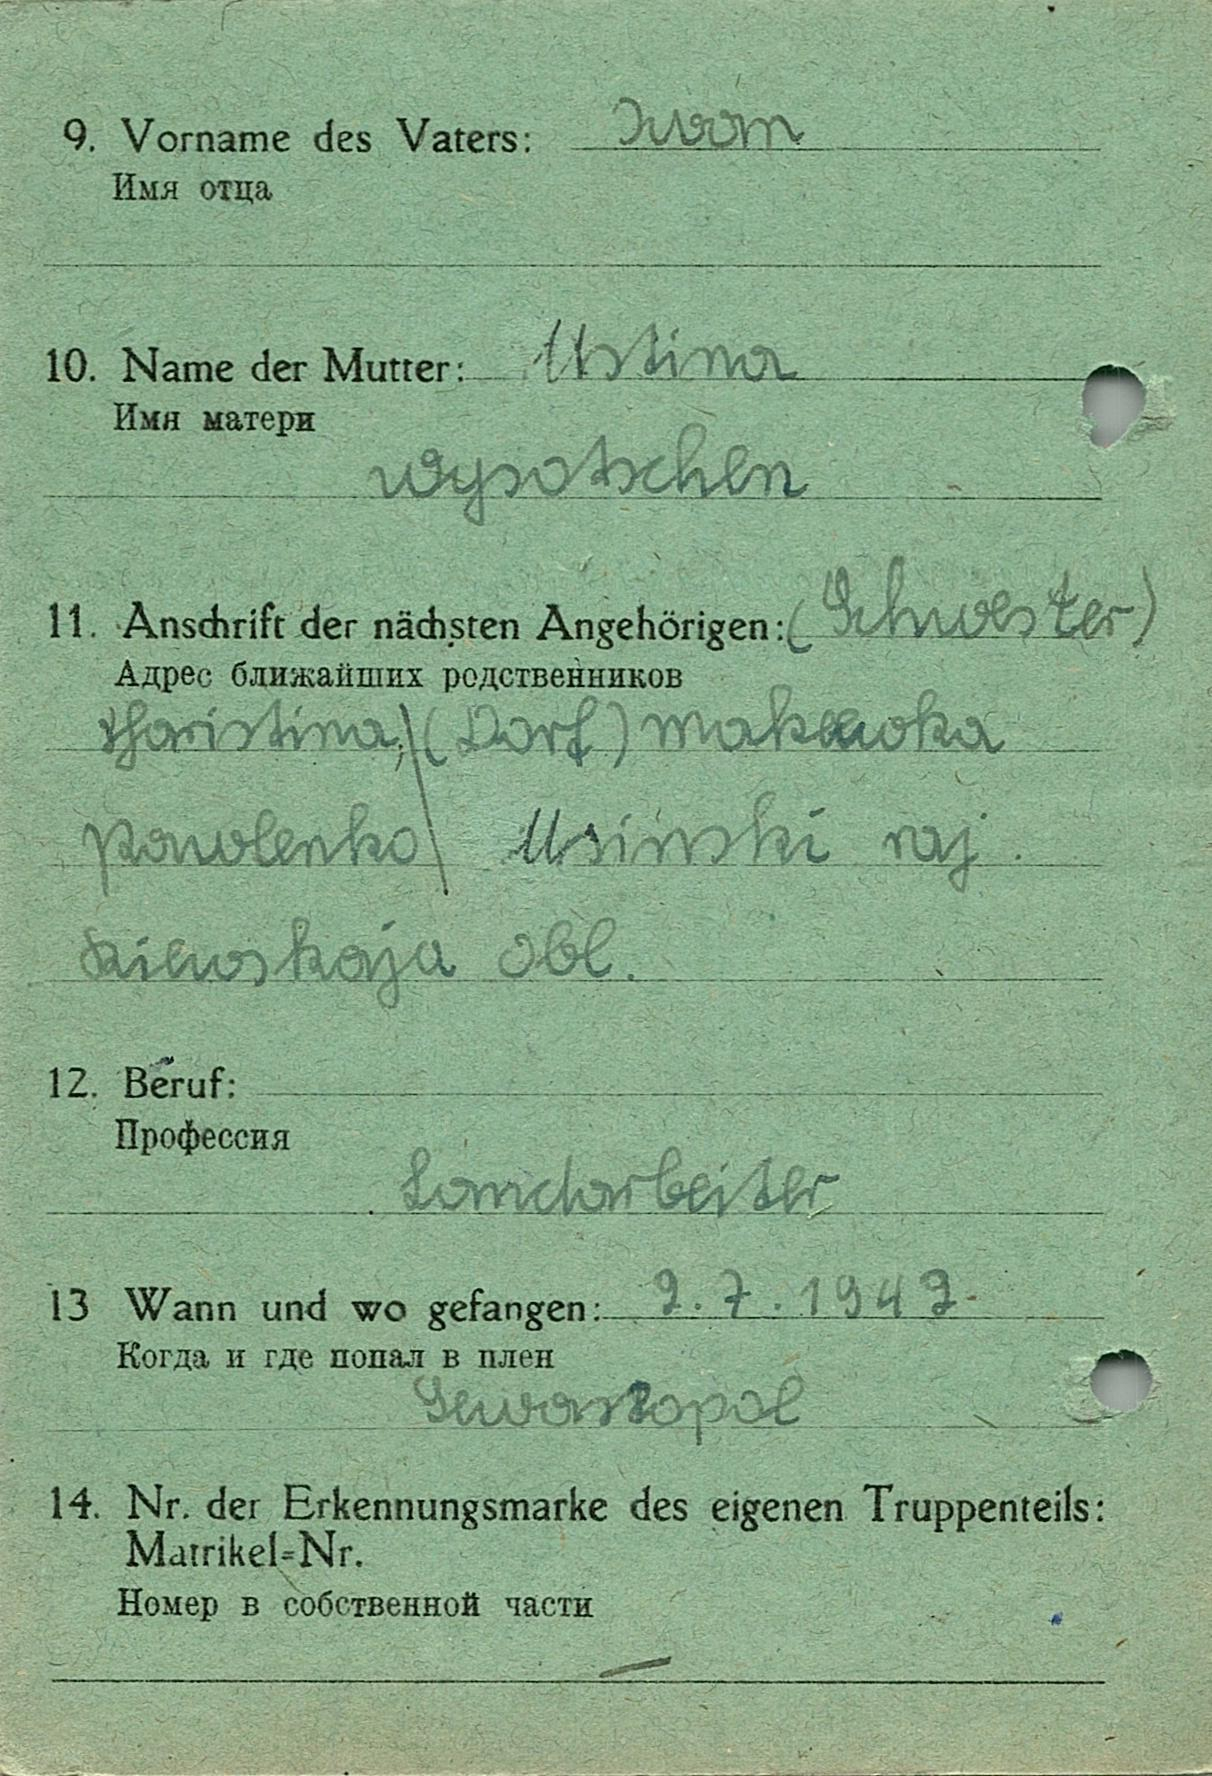 9. Vorname des Vaters: Iwan
Имя отца
10. Name der Mutter: Ustina
Имя матери
Wysotschen
11. Anschrift der nächsten Angehörigen: (Schwester)
Адрес ближайших родственников
(Dorf)
Pawlenko Usinski raj.
Kiewskaja Obl.
12. Beruf:
Профессия
Landarbeiter
13 Wann und wo gefangen: 2.7.1942
Когда и где попал в плен
Sewastopol
14. Nr. der Erkennungsmarke des eigenen Truppenteils:
Matrikel-Nr.
Номер в собственной части
—